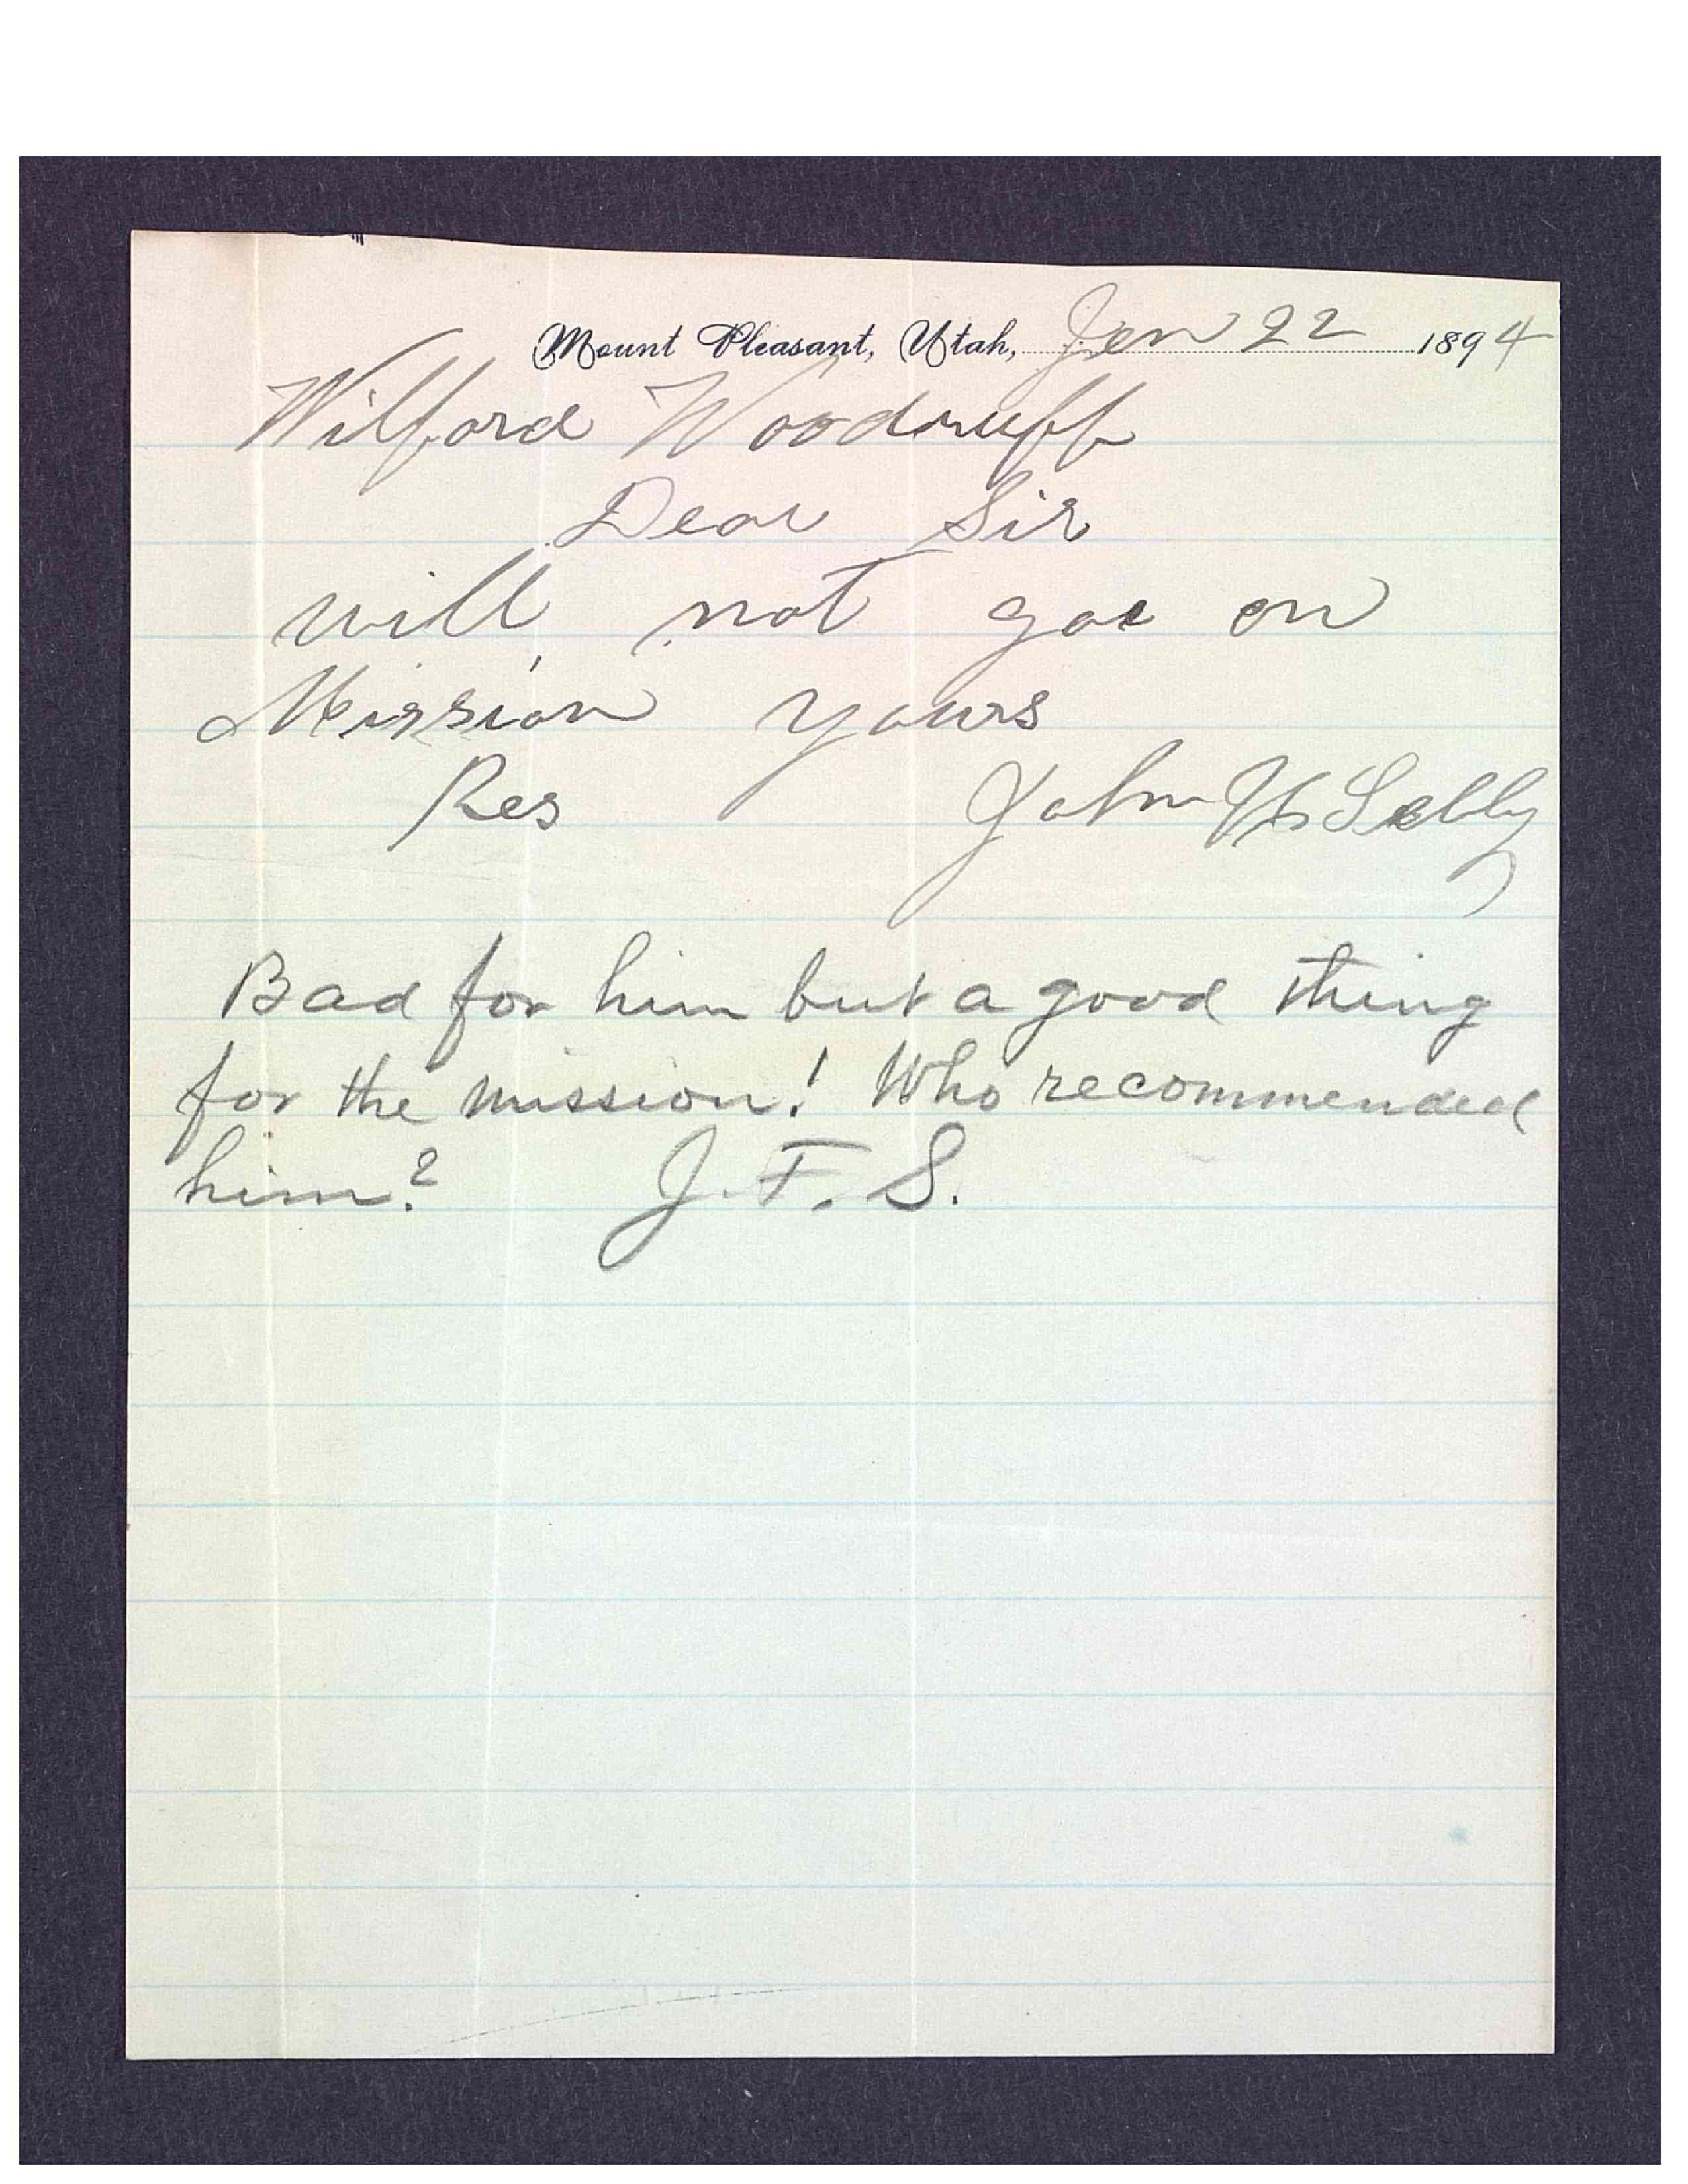 Mount Pleasant, Utah, Jan 22 1894
Wilford Woodruff
Dear Sir
will not goe on
Mission yours
Res John
Bad for him but a good thing
for the mission! Who recommended
him? J. F. S.